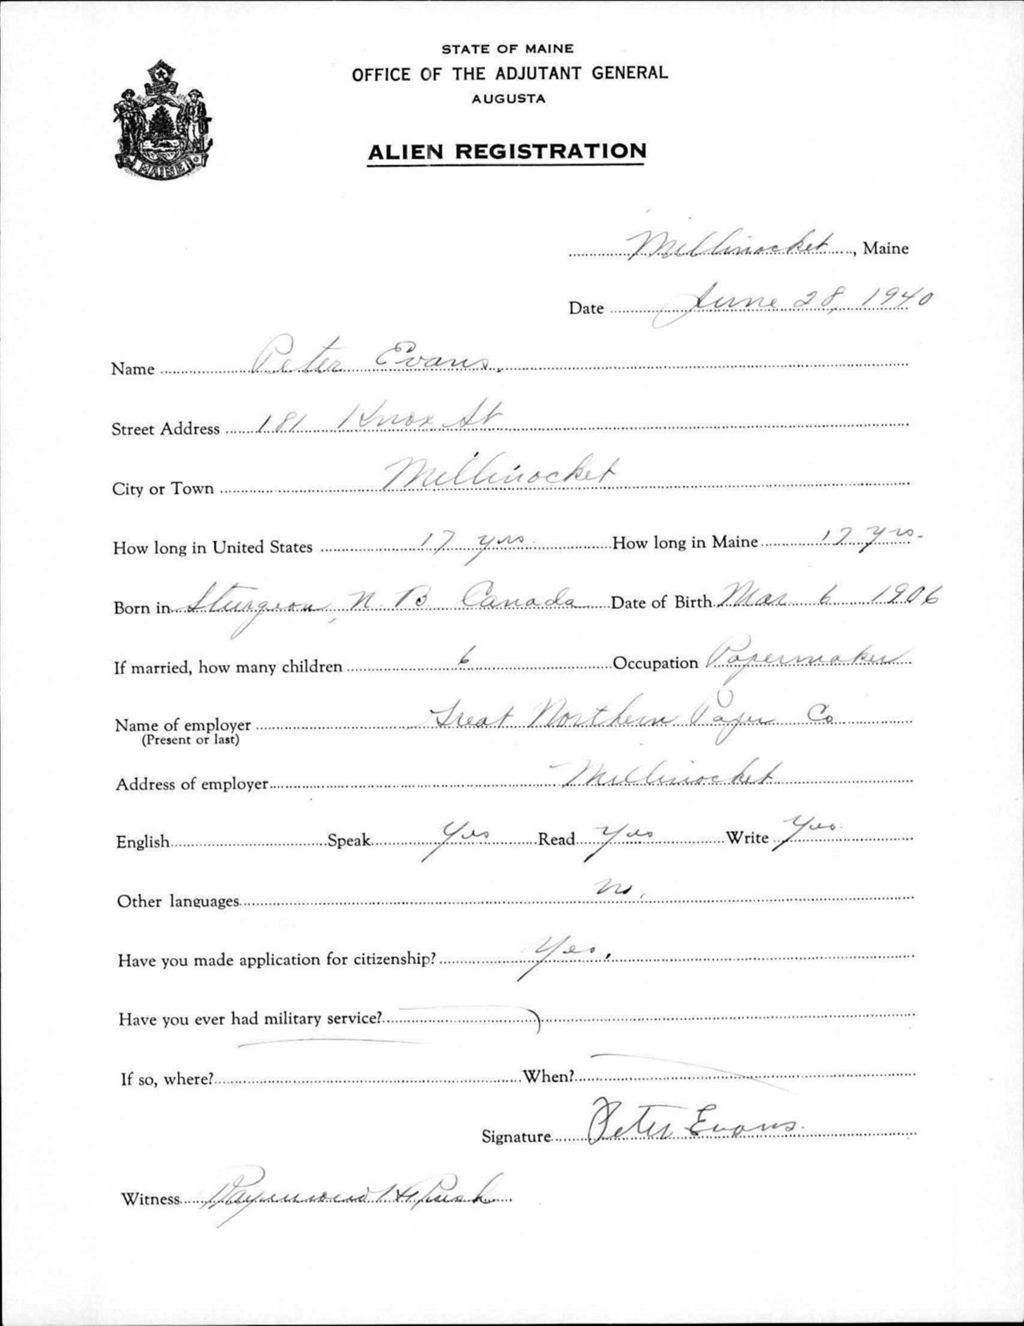 STATE OF MAINE
OFFICE OF THE ADJUTANT GENERAL
AUGUSTA
ALIEN REGISTRATION
MAINE
Millinocket, Maine
Date June 28, 1940
Name Peter Evans.
Street Address 181 Knox St
City or Town Millinocket
How long in United States 17 yrs. How long in Maine 17 yrs.
Born in Sturgeon, N B Canada Date of Birth Mar 6 1906
If married, how many children 6 Occupation Papermaker
Name of employer Great Northern Paper Co
(Present or last)
Address of employer Millinocket
English Speak Yes Read Yes Write Yes.
Other languages No.
Have you made application for citizenship? Yes.
Have you ever had military service?
If so, where? When?
Signature Peter Evans.
Witness Raymond H